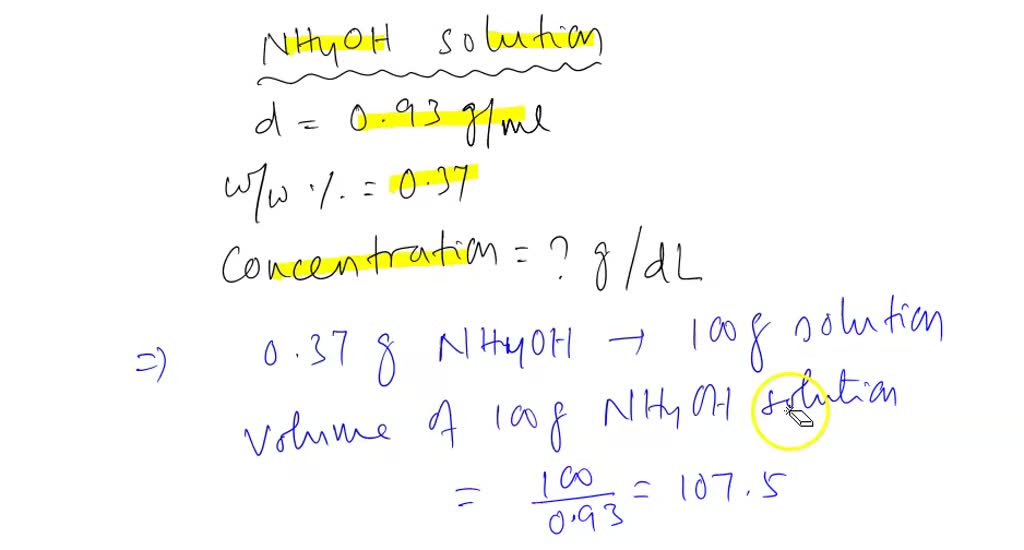 NH4OH solution
d = 0.93 g/ml
w/w %. = 0.37
Concentration = ? g/dL
=) 0.37 g NH4OH → 100g solution
Volume of 100g NH4OH solution
= 100/0.93 = 107.5